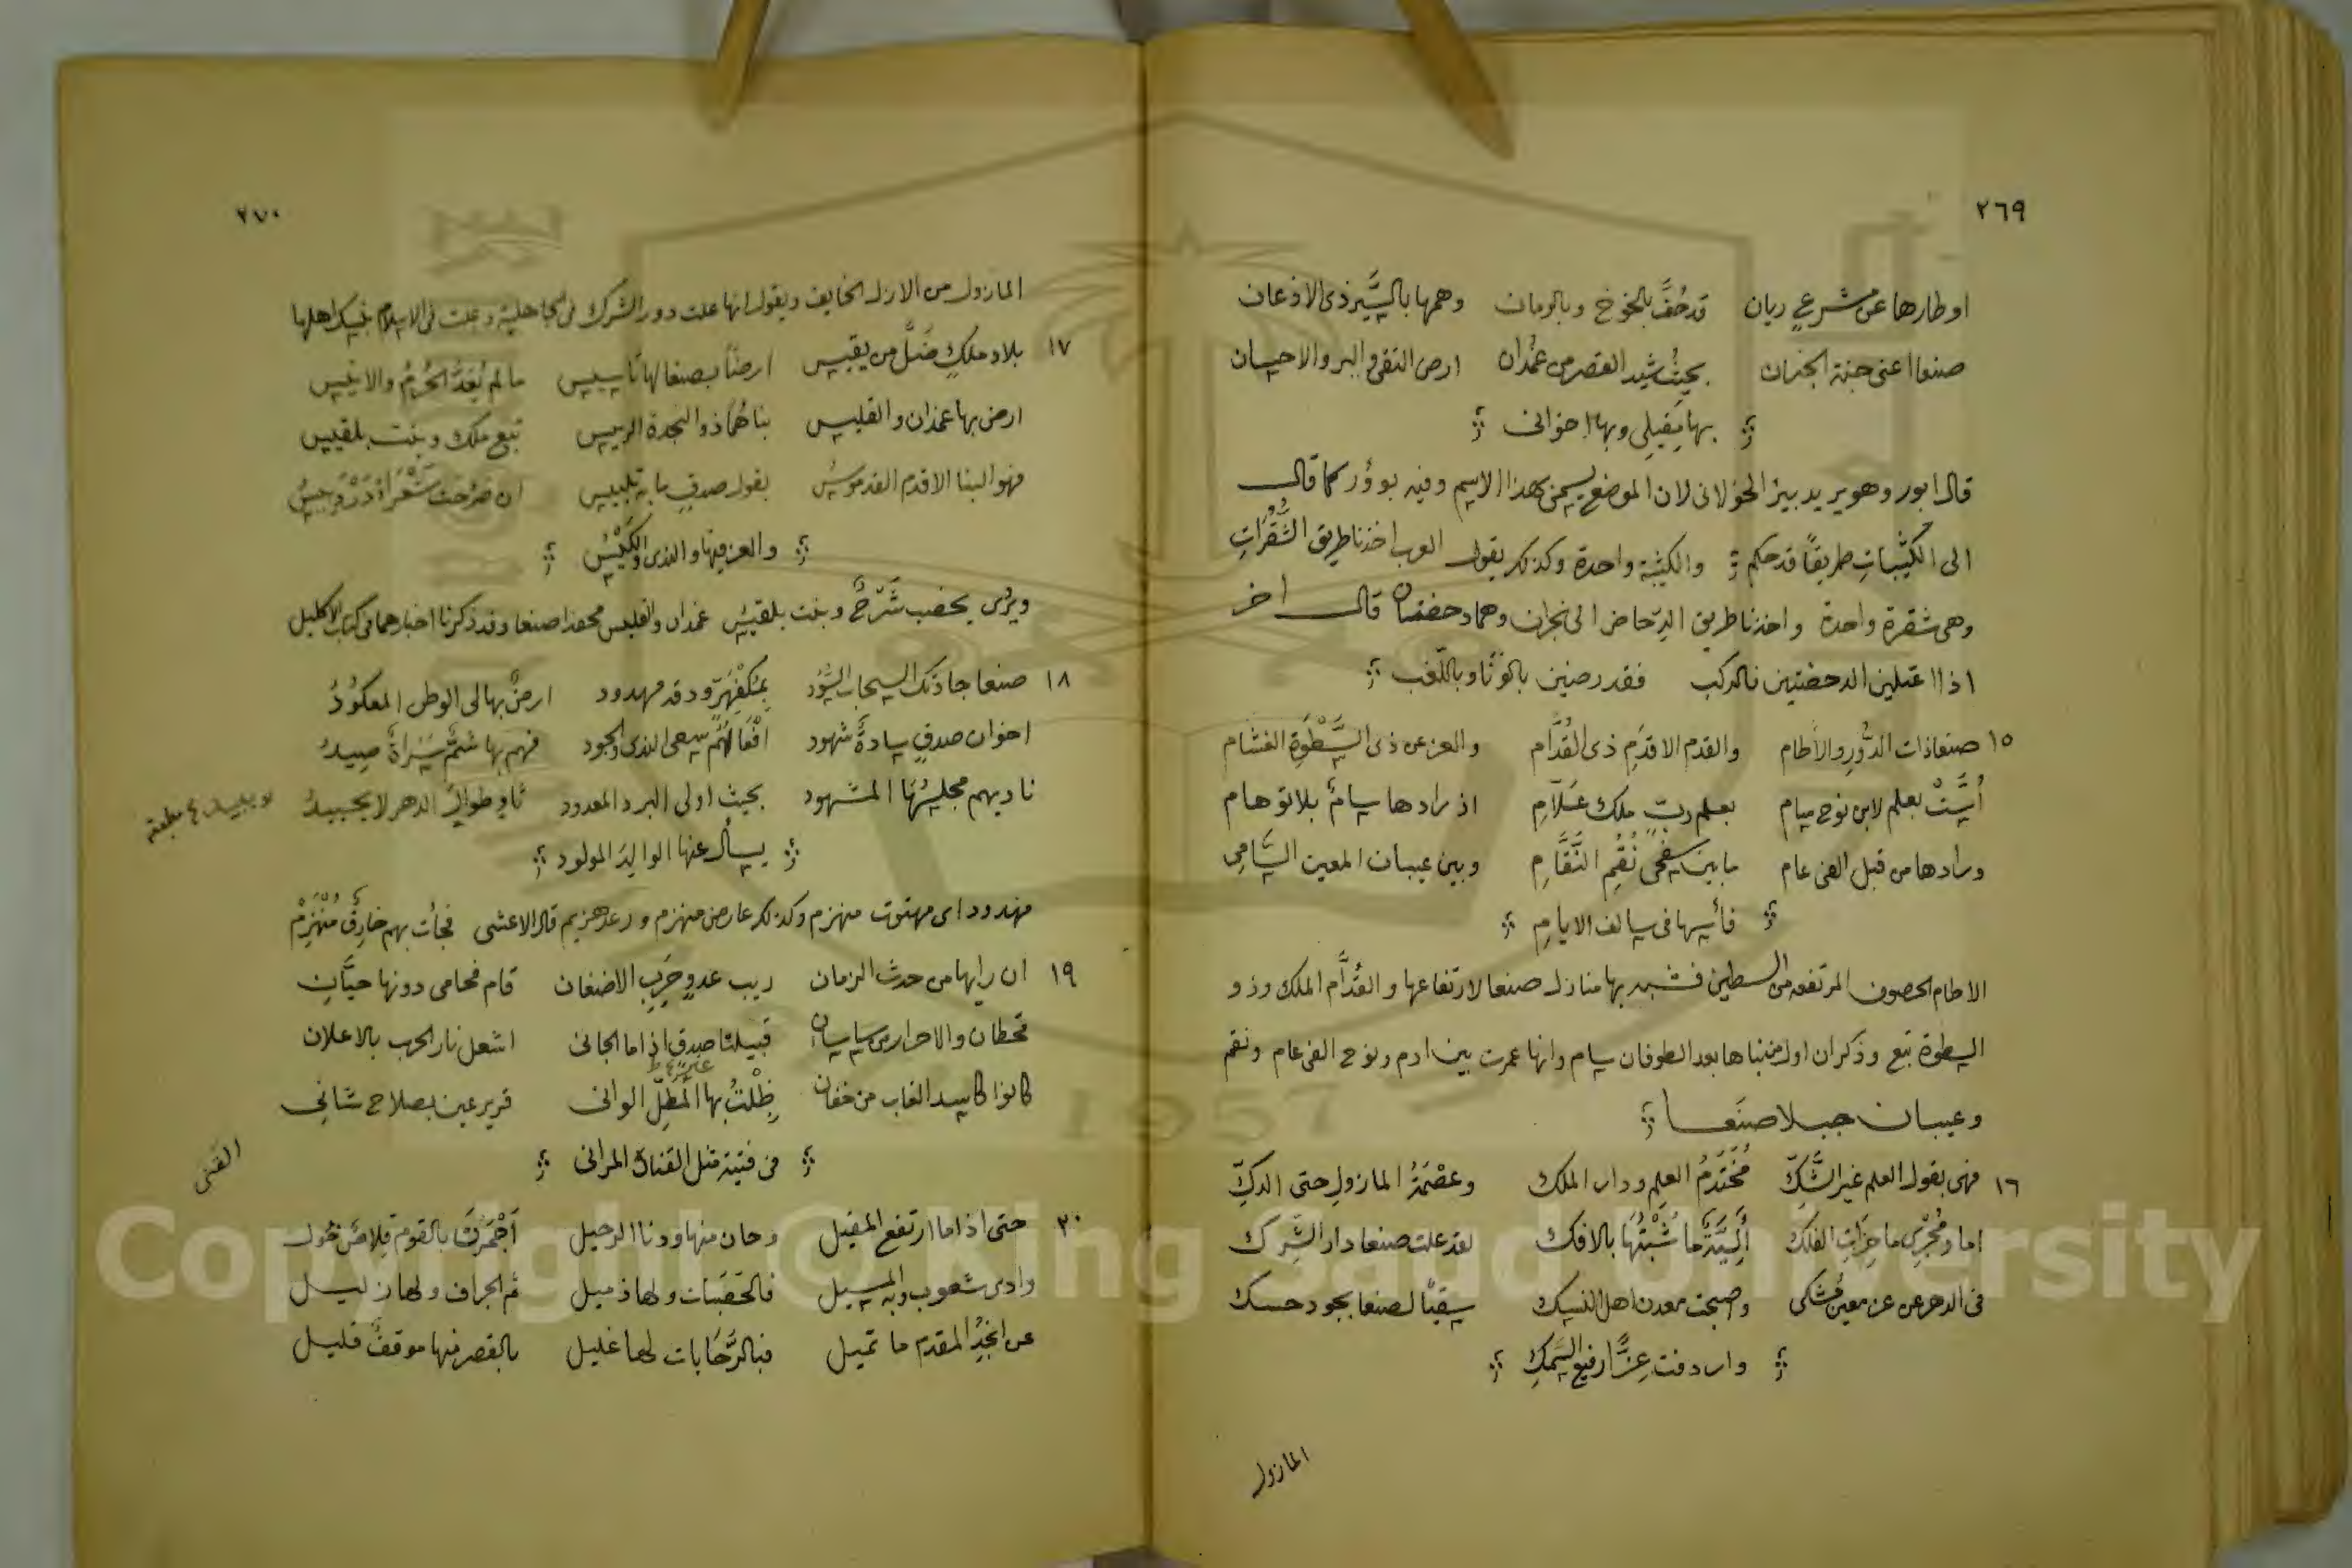 ٢٦٩
اوطارها عن مشرع ريان قد حُفَّ بالخوخ وبالرمان وهمها بالسَّير ذى الاذعان
صنعا اعنى جنة الجنان بحيث شيد القصر من غمدان ارض التقى والبر والاحسان
بها مقيلى وبها اخوانى
قال ابور وهو يريد بيز الخولانى لان الموضع يسمى هذا الاسم وفيه بوؤر كما قال
الى الكثيبات طريقًا قد حكم والكثيبة واحدة وكذلك يقول العرب اخذنا طريق الشُّقُرَاتِ
وهى شقرة واحدة واخذنا طريق الدحاض الى نجران وهما دحضتان قال اخر
اذا اعتلين الدحضتين فالركب فقد رضين بالونا وباللغب
١٥ صنعا ذات الدُّورِ والآطام والقدم الاقدَمِ ذى القُدَّام والعز عن ذى السَّطْوَةِ الغشام
أُسَّتْ بعلم لابن نوح سام بعلم ربّ ملك عَلّامِ اذ رادها سامٌ بلا توهام
ورادها من قبل الفى عام ما بين سفحى نُقُمِ النَّقَّامِ وبين عيبان المعين السَّامِى
فأسها فى سالف الايامِ
الاطام الحصون المرتفعه من السطين فشبه بها منازل صنعا لارتفاعها والقُدَّام الملك وذو
السطوة تبع وذكر ان اول من بناها بعد الطوفان سام وانها عمرت بين ادم ونوح الفى عام ونقم
وعيبان جبلا صنعا
١٦ فهى بقول العلم غير الشَّكِّ مُخْتَدَمُ العِلمِ ودار الملك وعصْمَةُ المازولِ حتى الدكِّ
اما ومُجْرِى ماخِرَاتِ الفلك أَلِيَّةً ما شُبْتُهَا بالافك لقد علت صنعا دار الشرك
فى الدهر عن عز معين مُشكى واصبحت معدن اهل النسك سقيًا لصنعا بجود حسك
واردفت عِزًّا رفيع السَّمكِ
المازول
٢٧٠
المازول من الازل الخايف ويقول انها علت دور الشرك فى الجاهلية وعلت فى الاسلام بنسك اهلها
١٧ بلاد ملكٍ ضَلَّ من يقيس ارضًا بصنعا لها تأسيس مالم يُعَدَّ الحُرُمُ والانيس
ارض بها غمدان والقليس بناهُمَا ذو النجدة الرييس تبع ملك وبنت بلقيس
فهو البنا الاقدم القدموسُ بقول صدقٍ ما به تلبيس
والعز فيها والندى والكَيْسُ
ويروى يحضب شَرْحٌ وبنت بلقيسُ غمدان والقليس محفدا صنعا وقد ذكرنا اخبارهما فى كتاب الاكليل
١٨ صنعا جادتك السحاب السُّود بمُكْفَهِرّ ودقه مهدود ارضٌ بها لى الوطن المعكودُ
اخوان صدقٍ سادةٌ شهود افْعَالُهُم سعى الندى والجود فهم بها شمٌّ سَرَاةٌ صيدُ
ناديهم مجلسُهَا المشهود بحيث اولى البرد المعدود ثاوٍ طوال الدهر لا يحيدُ
يسأل عنها الوالِدَ المولود
مهدود اى مهتوت منهزم وكذلك عارض منهزم ورعد هزيم قال الاعشى فجأت بهم خارِقٌ مُنْهَزِمْ
١٩ ان رابها من حدث الزمان ريب عدوٍ حَرِبِ الاضغان قام فحامى دونها حيَّانِ
قحطان والاحرار من ساسان قبيلتا صدقٍ اذا ما الجانى اشعل نار الحرب بالاعلان
كانوا كاسد الغاب من خفان ظِلْتُ بها المُطِلّ الوانى قرير عين بصلاح شانى
من فتية مثل القنان المرانى
٢٠ حتى اذا ما ارتفع المقيل وحان منها ودنا الرحيل أَجْمَرَتْ بالقوم قِلاصٌ حُول
وادى شعوب وبه المسيل فالحَصَبَات ولها ذميل ثم الجراف ولها زليل
عن الجُدُ المقدم ما تميل فبالرَّحَابات لها غليل بالقصر منها موقفٌ قليل